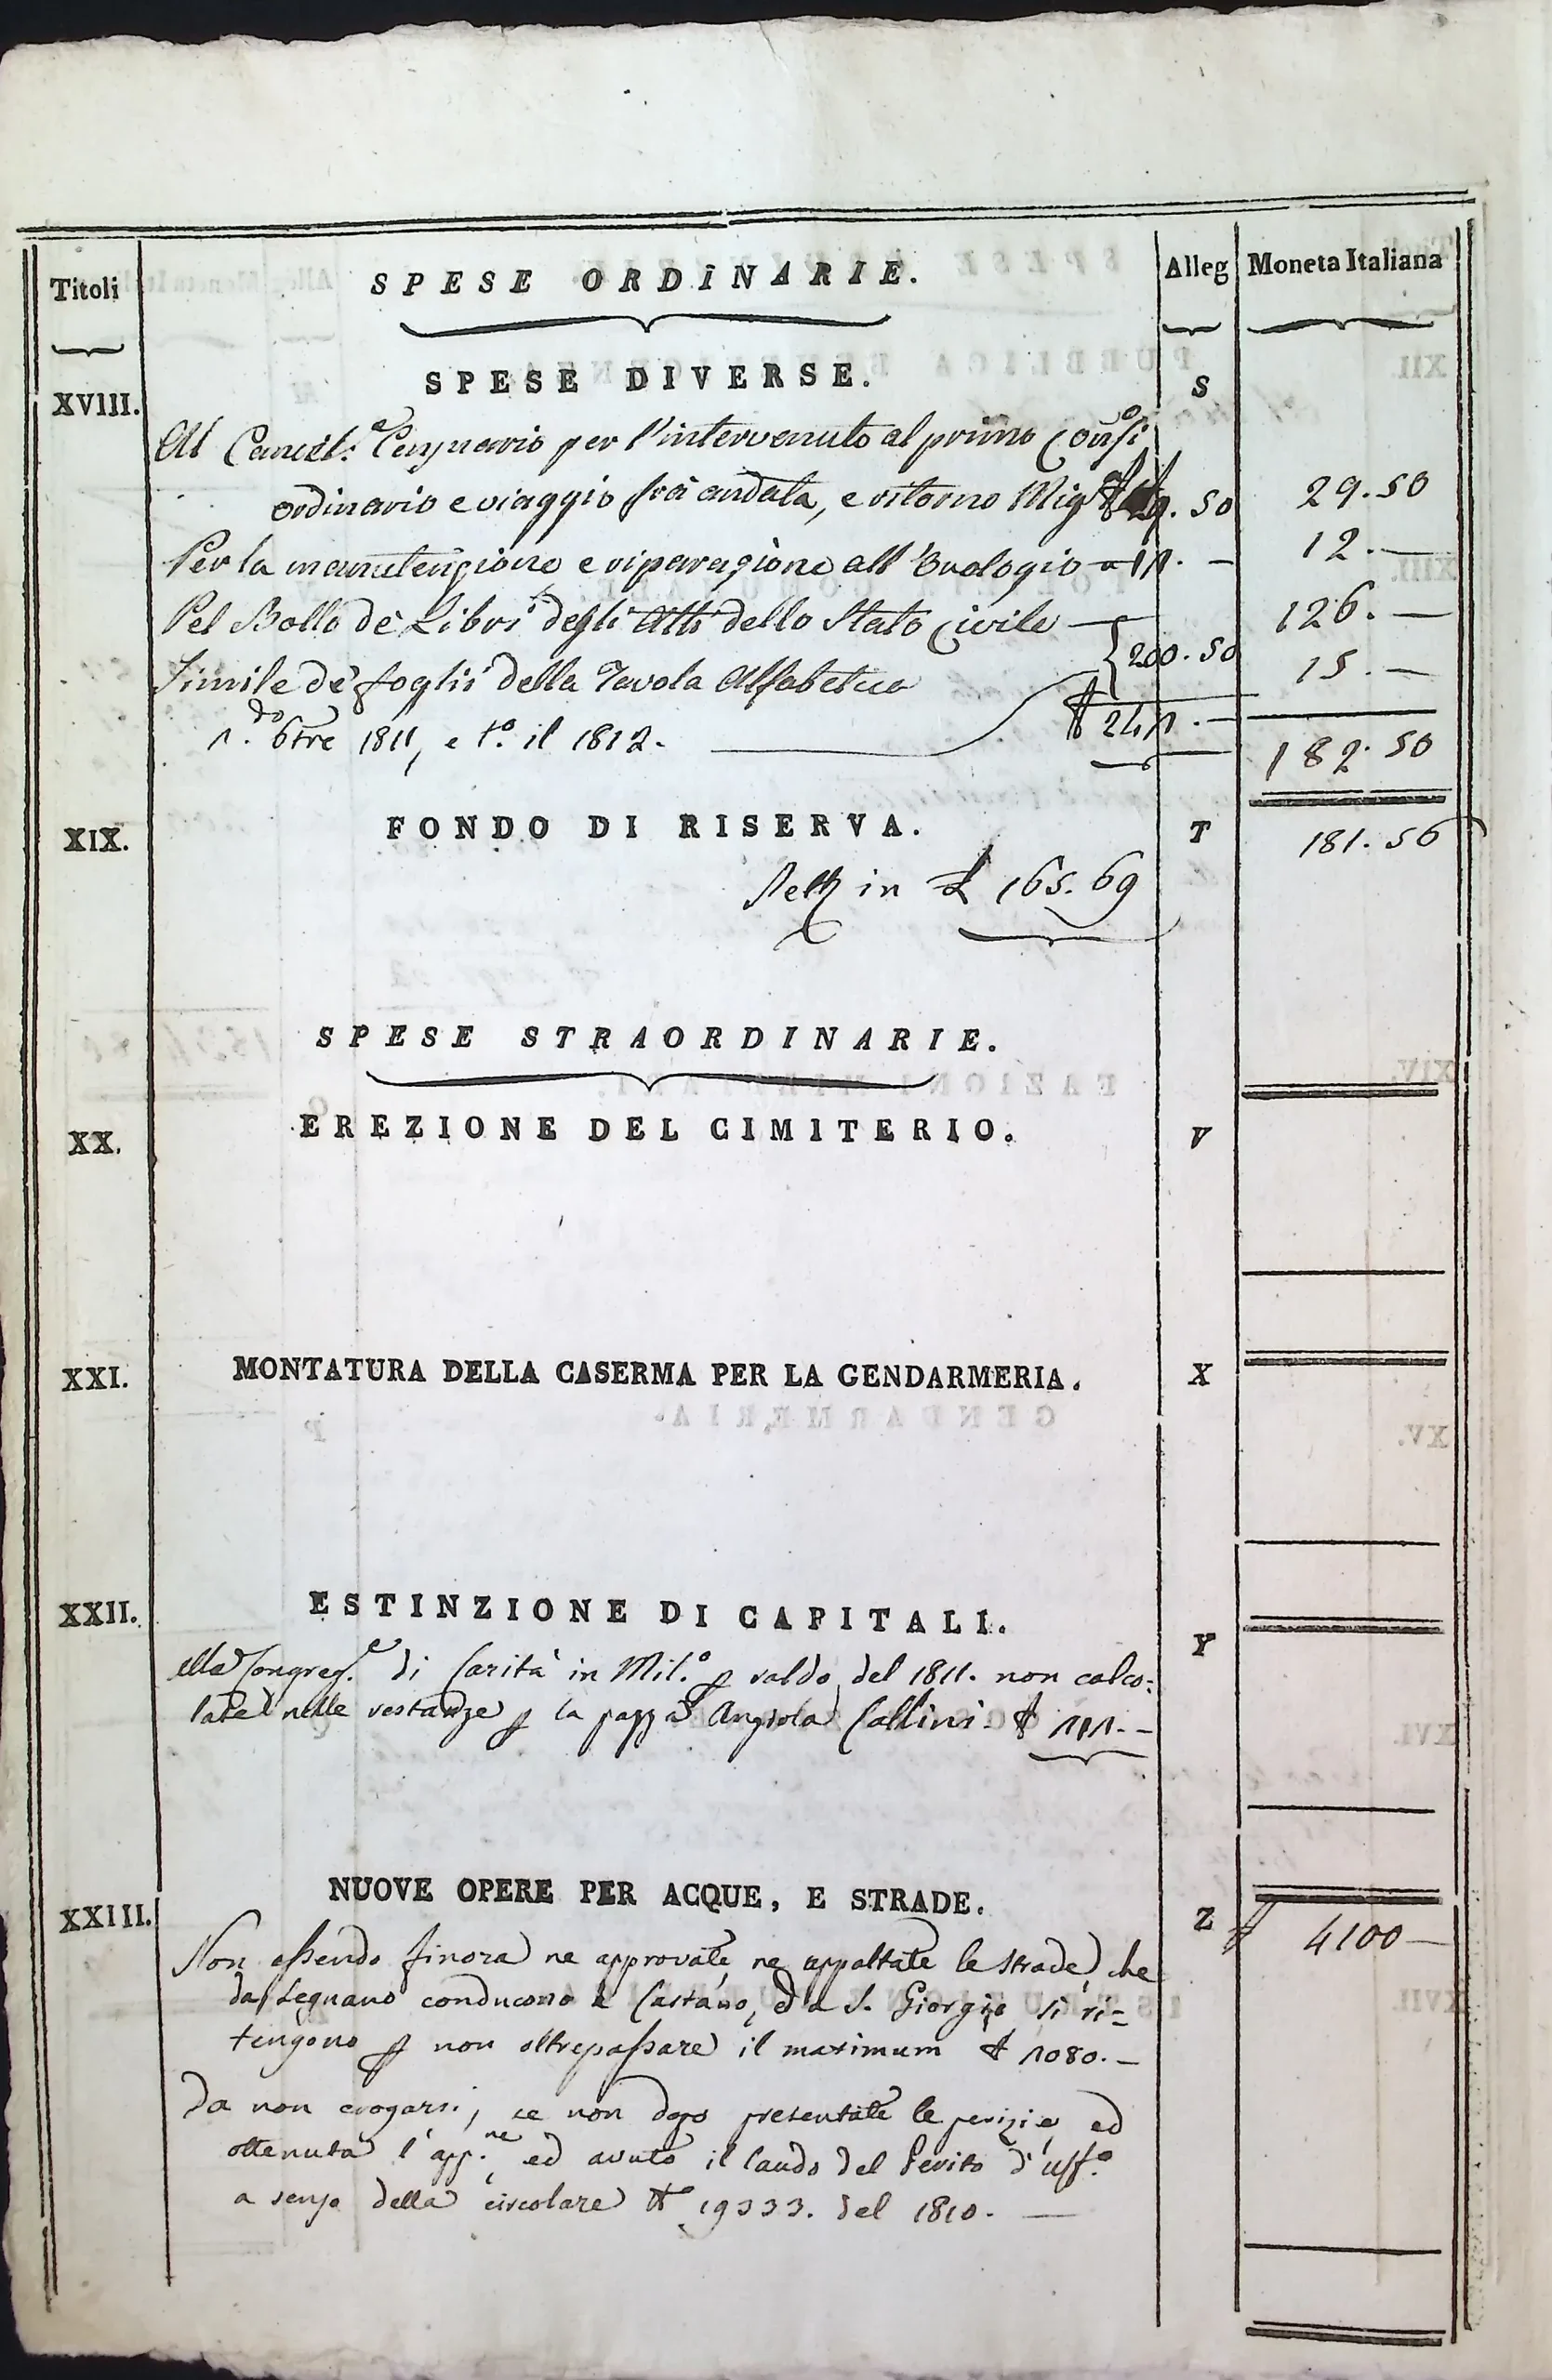 Titoli SPESE ORDINARIE. Alleg Moneta Italiana
XVIII. SPESE DIVERSE. S
Al Cancel.e Censuario per l'intervenuto al primo Consi
ordinario e viaggio frà andata, e ritorno Mig. 29.50 29.50
Per la manutenzione e riparazione all'Orologio 11.— 12.—
Pel Bollo de' Libri degli Atti dello Stato Civile — 126.—
Simile de' foglj della Tavola Alfabetica 200.50 15.—
1.do 6tre 1811, e t.o il 1812. — 241.— 182.50
XIX. FONDO DI RISERVA. T 181.56
in £ 165.69
SPESE STRAORDINARIE.
XX. EREZIONE DEL CIMITERIO. V
XXI. MONTATURA DELLA CASERMA PER LA GENDARMERIA. X
XXII. ESTINZIONE DI CAPITALI. Y
alla Congreg.e di Carità in Mil.o p saldo del 1811. non calco:
late nelle restanze p la pazza Angiola Collini. £ 111.—
XXIII. NUOVE OPERE PER ACQUE, E STRADE. Z £ 4100—
Non essendo finora ne approvate, ne appaltate le strade, che
da Legnano conducono a Castano, ed a S. Giorgio si ri=
tengono p non oltrepassare il maximum £ 1080.—
Da non erogarsi, se non dopo presentate le perizie, ed
ottenuta l'app.ne, ed avuto il laudo del Perito d'uff.o
a senso della circolare N.o 19333. del 1810. —